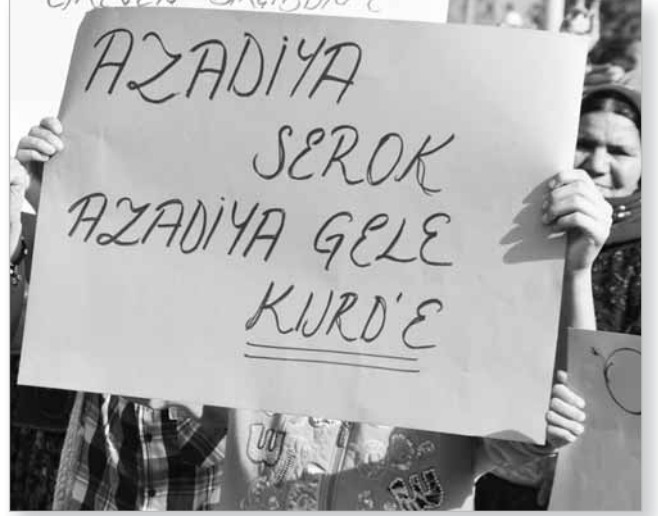 AZADİYA
SEROK
AZADİYA GELE
KURD'E